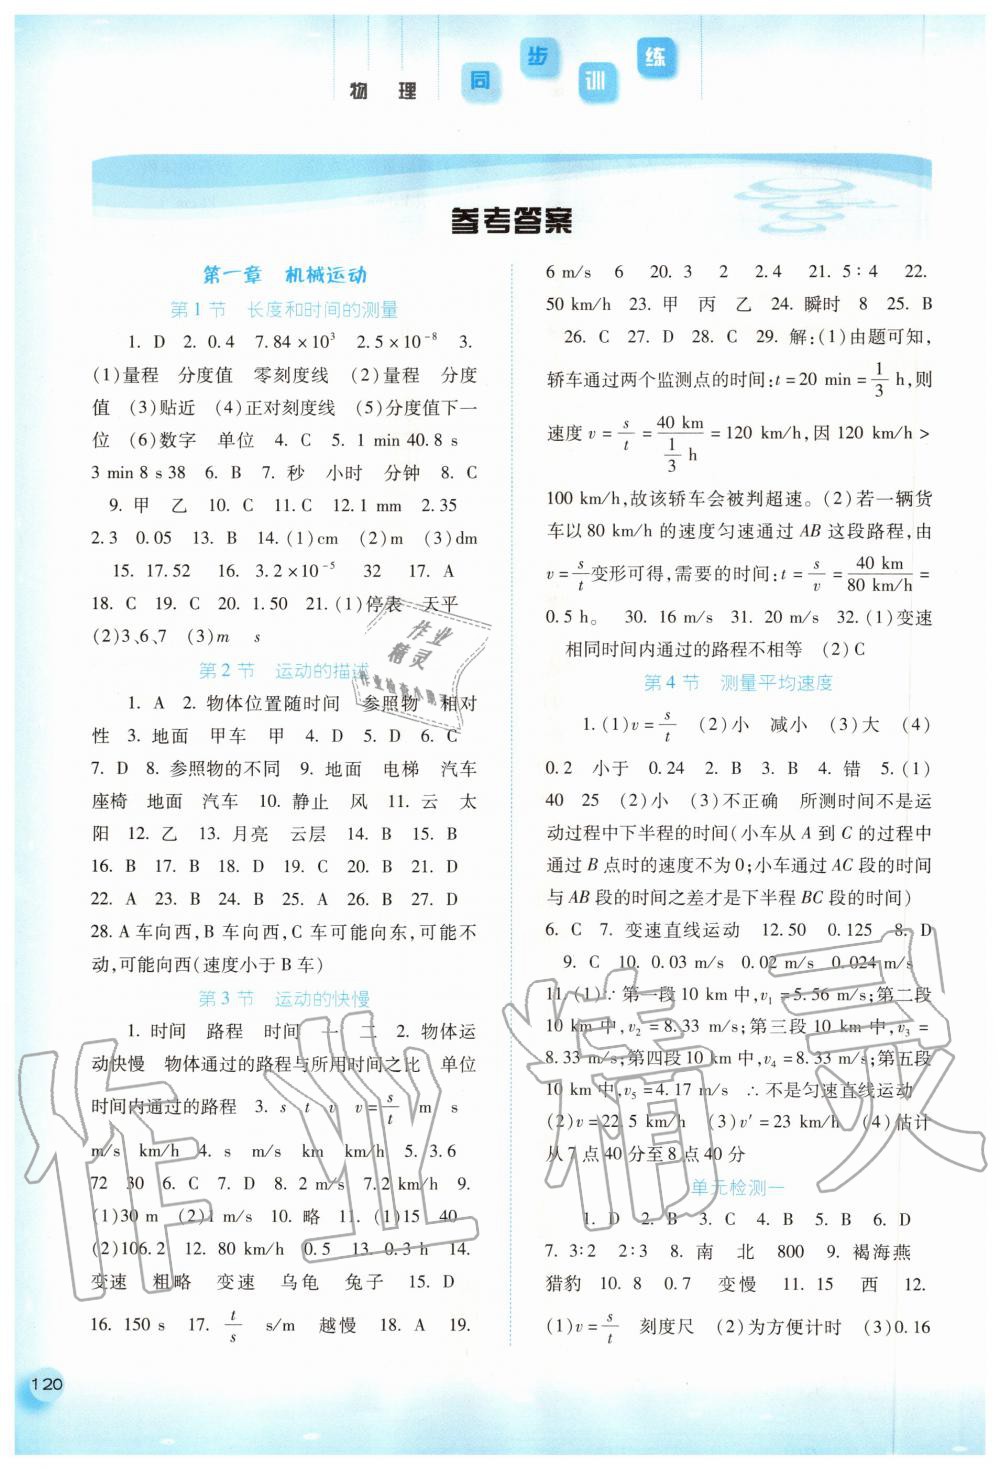 物 理 同 步 训 练
参考答案
第一章 机械运动
第1节 长度和时间的测量
1. D 2. 0.4 7.84×10³ 2.5×10⁻⁸ 3.
(1)量程 分度值 零刻度线 (2)量程 分度
值 (3)贴近 (4)正对刻度线 (5)分度值下一
位 (6)数字 单位 4. C 5. 1 min 40.8 s
3 min 8 s 38 6. B 7. 秒 小时 分钟 8. C
9. 甲 乙 10. C 11. C 12. 1 mm 2.35
2.3 0.05 13. B 14. (1)cm (2)m (3)dm
15. 17.52 16. 3.2×10⁻⁵ 32 17. A
18. C 19. C 20. 1.50 21. (1)停表 天平
(2)3、6、7 (3)m s
第2节 运动的描述
1. A 2. 物体位置随时间 参照物 相对
性 3. 地面 甲车 甲 4. D 5. D 6. C
7. D 8. 参照物的不同 9. 地面 电梯 汽车
座椅 地面 汽车 10. 静止 风 11. 云 太
阳 12. 乙 13. 月亮 云层 14. B 15. B
16. B 17. B 18. D 19. C 20. B 21. D
22. A 23. B 24. B 25. A 26. B 27. D
28. A车向西,B车向西,C车可能向东,可能不
动,可能向西(速度小于B车)
第3节 运动的快慢
1. 时间 路程 时间 一 二 2. 物体运
动快慢 物体通过的路程与所用时间之比 单位
时间内通过的路程 3. s t v v=s/t m s
m/s km/h 4. s m/s km km/h 5. 3.6
72 30 6. C 7. D 8. 2 m/s 7.2 km/h 9.
(1)30 m (2)1 m/s 10. 略 11. (1)15 40
(2)106.2 12. 80 km/h 0.5 13. 0.3 h 14.
变速 粗略 变速 乌龟 兔子 15. D
16. 150 s 17. t/s s/m 越慢 18. A 19.
6 m/s 6 20. 3 2 2.4 21. 5∶4 22.
50 km/h 23. 甲 丙 乙 24. 瞬时 8 25. B
26. C 27. D 28. C 29. 解:(1)由题可知,
轿车通过两个监测点的时间:t=20 min=1/3 h,则
速度v=s/t=40 km/(1/3 h)=120 km/h,因120 km/h>
100 km/h,故该轿车会被判超速。(2)若一辆货
车以80 km/h的速度匀速通过AB这段路程,由
v=s/t变形可得,需要的时间:t=s/v=40 km/80 km/h=
0.5 h。 30. 16 m/s 31. 20 m/s 32. (1)变速
相同时间内通过的路程不相等 (2)C
第4节 测量平均速度
1. (1)v=s/t (2)小 减小 (3)大 (4)
0.2 小于 0.24 2. B 3. B 4. 错 5. (1)
40 25 (2)小 (3)不正确 所测时间不是运
动过程中下半程的时间(小车从A到C的过程中
通过B点时的速度不为0;小车通过AC段的时间
与AB段的时间之差才是下半程BC段的时间)
6. C 7. 变速直线运动 12.50 0.125 8. D
9. C 10. 0.03 m/s 0.02 m/s 0.024 m/s
11. (1)∵第一段10 km中,v₁=5.56 m/s;第二段
10 km中,v₂=8.33 m/s;第三段10 km中,v₃=
8.33 m/s;第四段10 km中,v₄=8.33 m/s;第五段
10 km中,v₅=4.17 m/s ∴不是匀速直线运动
(2)v=22.5 km/h (3)v′=23 km/h (4)估计
从7点40分至8点40分
单元检测一
1. D 2. B 3. C 4. B 5. B 6. D
7. 3∶2 2∶3 8. 南 北 800 9. 褐海燕
猎豹 10. 8 0.7 变慢 11. 15 西 12.
(1)v=s/t 刻度尺 (2)为方便计时 (3)0.16
120
作业
精灵
作业检查小帮手
作业精灵